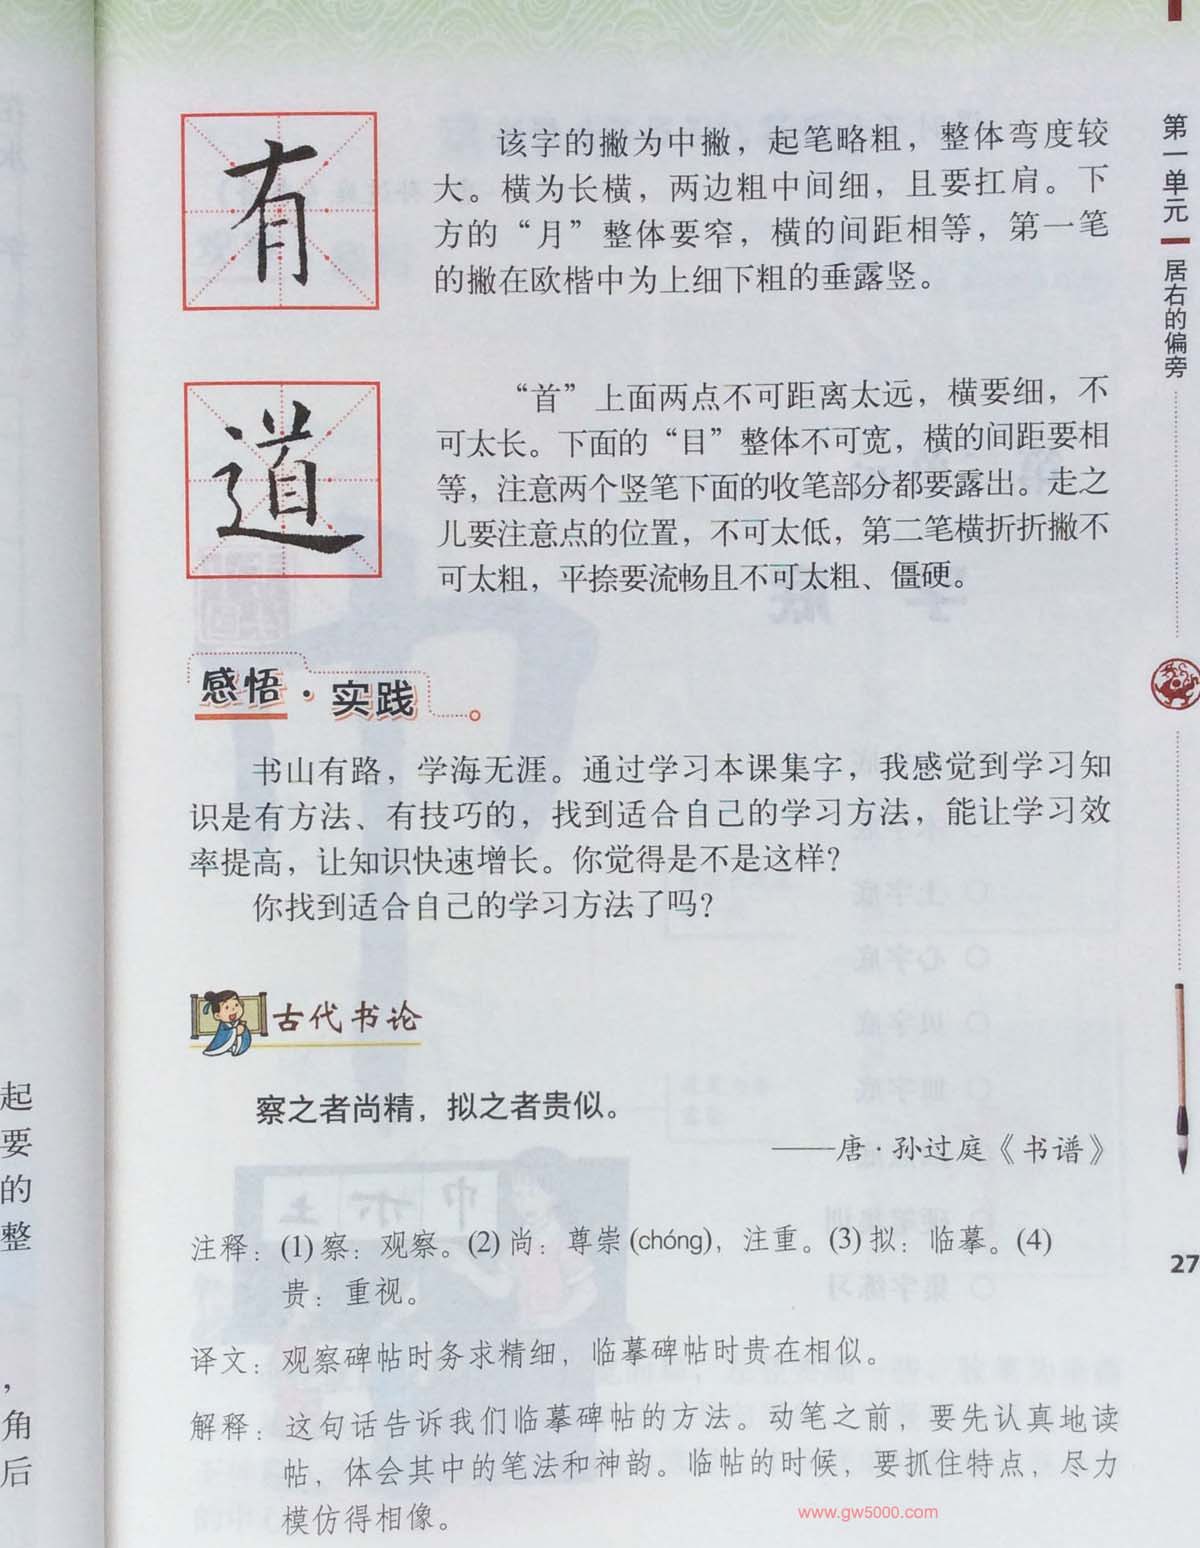 有
该字的撇为中撇，起笔略粗，整体弯度较
大。横为长横，两边粗中间细，且要扛肩。下
方的“月”整体要窄，横的间距相等，第一笔
的撇在欧楷中为上细下粗的垂露竖。
道
“首”上面两点不可距离太远，横要细，不
可太长。下面的“目”整体不可宽，横的间距要相
等，注意两个竖笔下面的收笔部分都要露出。走之
儿要注意点的位置，不可太低，第二笔横折折撇不
可太粗，平捺要流畅且不可太粗、僵硬。
感悟·实践
书山有路，学海无涯。通过学习本课集字，我感觉到学习知
识是有方法、有技巧的，找到适合自己的学习方法，能让学习效
率提高，让知识快速增长。你觉得是不是这样？
你找到适合自己的学习方法了吗？
古代书论
察之者尚精，拟之者贵似。
——唐·孙过庭《书谱》
注释：(1)察：观察。(2)尚：尊崇(chóng)，注重。(3)拟：临摹。(4)
贵：重视。
译文：观察碑帖时务求精细，临摹碑帖时贵在相似。
解释：这句话告诉我们临摹碑帖的方法。动笔之前，要先认真地读
帖，体会其中的笔法和神韵。临帖的时候，要抓住特点，尽力
模仿得相像。
第一单元
居右的偏旁
27
起
要
的
整
，
角
后
www.gw5000.com